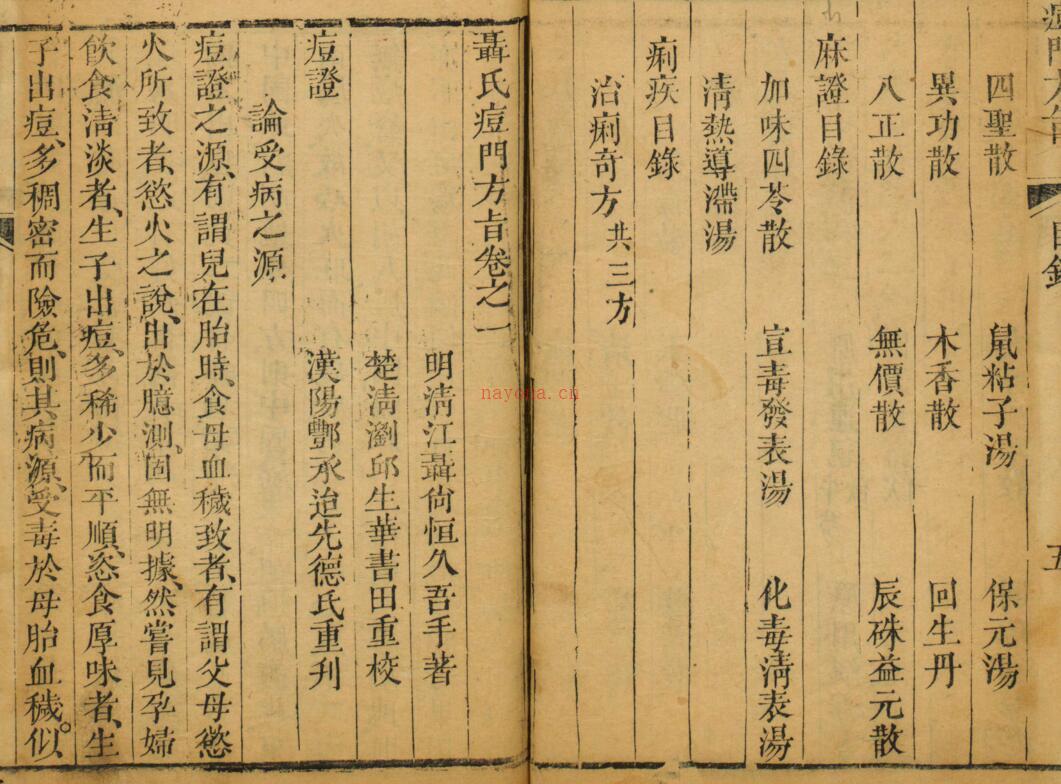 痘門方旨 目錄 五
四聖散 鼠粘子湯 保元湯
異功散 木香散 回生丹
八正散 無價散 辰硃益元散
麻證目錄
加味四苓散 宣毒發表湯 化毒淸表湯
淸熱導滯湯
痢疾目錄
治痢奇方 共三方
聶氏痘門方旨卷之一
明淸江聶尙恒久吾手著
楚淸瀏邱生華書田重校
痘證 漢陽酆承迨先德氏重刋
論受病之源
痘證之源、有謂兒在胎時、食母血穢致者、有謂父母慾
火所致者、慾火之說、出於臆測、固無明據、然嘗見孕婦
飲食淸淡者、生子出痘、多稀少而平順、恣食厚味者、生
子出痘、多稠密而險危、則其病源、受毒於母胎血穢。似、
nayona.cn